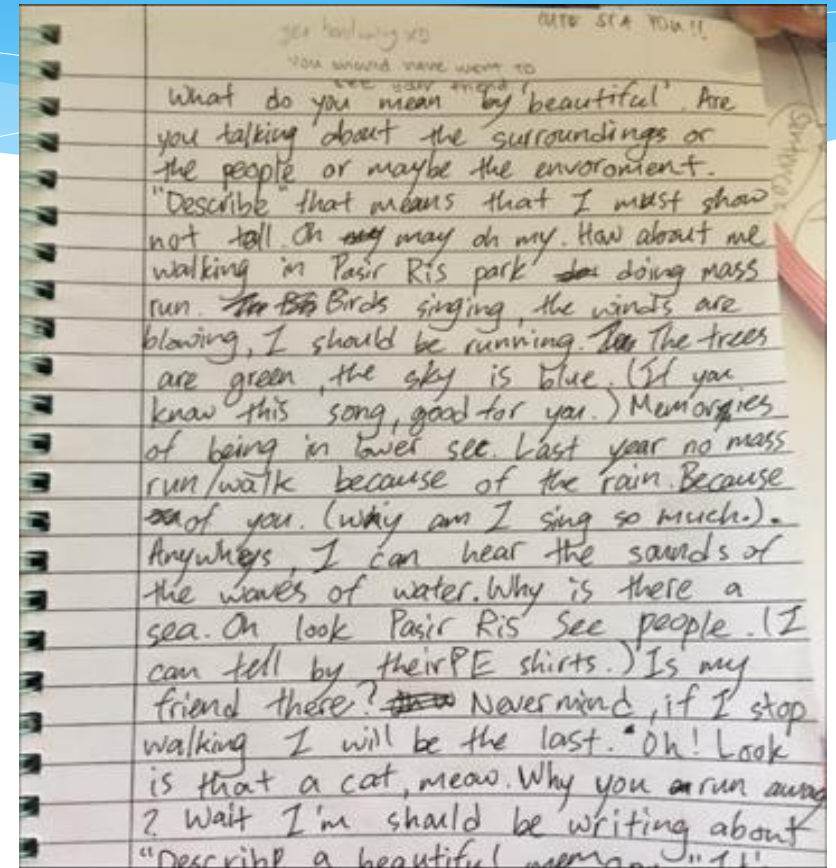 CUTE SIA YOU!!
You should have went to
see your friend!
What do you mean by 'beautiful'. Are
you talking about the surroundings or
the people or maybe the envoroment.
"Describe" that means that I must show
not tell. Oh may oh my. How about me
walking in Pasir Ris park doing mass
run. Birds singing, the winds are
blowing, I should be running. The trees
are green, the sky is blue. (If you
know this song, good for you.) Memories
of being in lower sec. Last year no mass
run/walk because of the rain. Because
of you. (Why am I sing so much.).
Anywheys, I can hear the sounds of
the waves of water. Why is there a
sea. Oh look Pasir Ris Sec people. (I
can tell by their PE shirts.) Is my
friend there? Nevermind, if I stop
walking I will be the last. Oh! Look
is that a cat, meow. Why you run away
? Wait I'm should be writing about
"Describe a beautiful